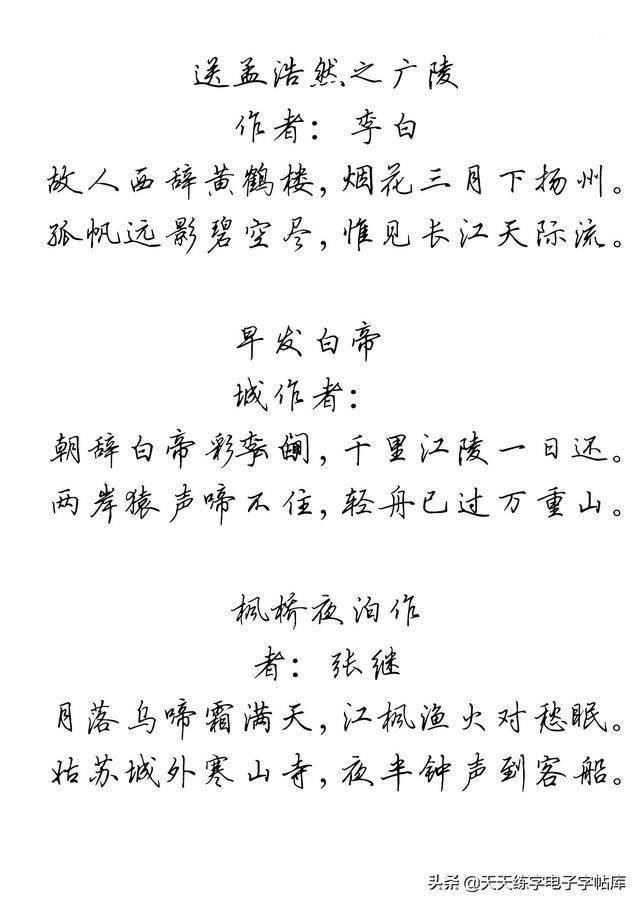 送孟浩然之广陵
作者：李白
故人西辞黄鹤楼，烟花三月下扬州。
孤帆远影碧空尽，惟见长江天际流。
早发白帝
城作者：
朝辞白帝彩云间，千里江陵一日还。
两岸猿声啼不住，轻舟已过万重山。
枫桥夜泊作
者：张继
月落乌啼霜满天，江枫渔火对愁眠。
姑苏城外寒山寺，夜半钟声到客船。
头条 @天天练字电子字帖库